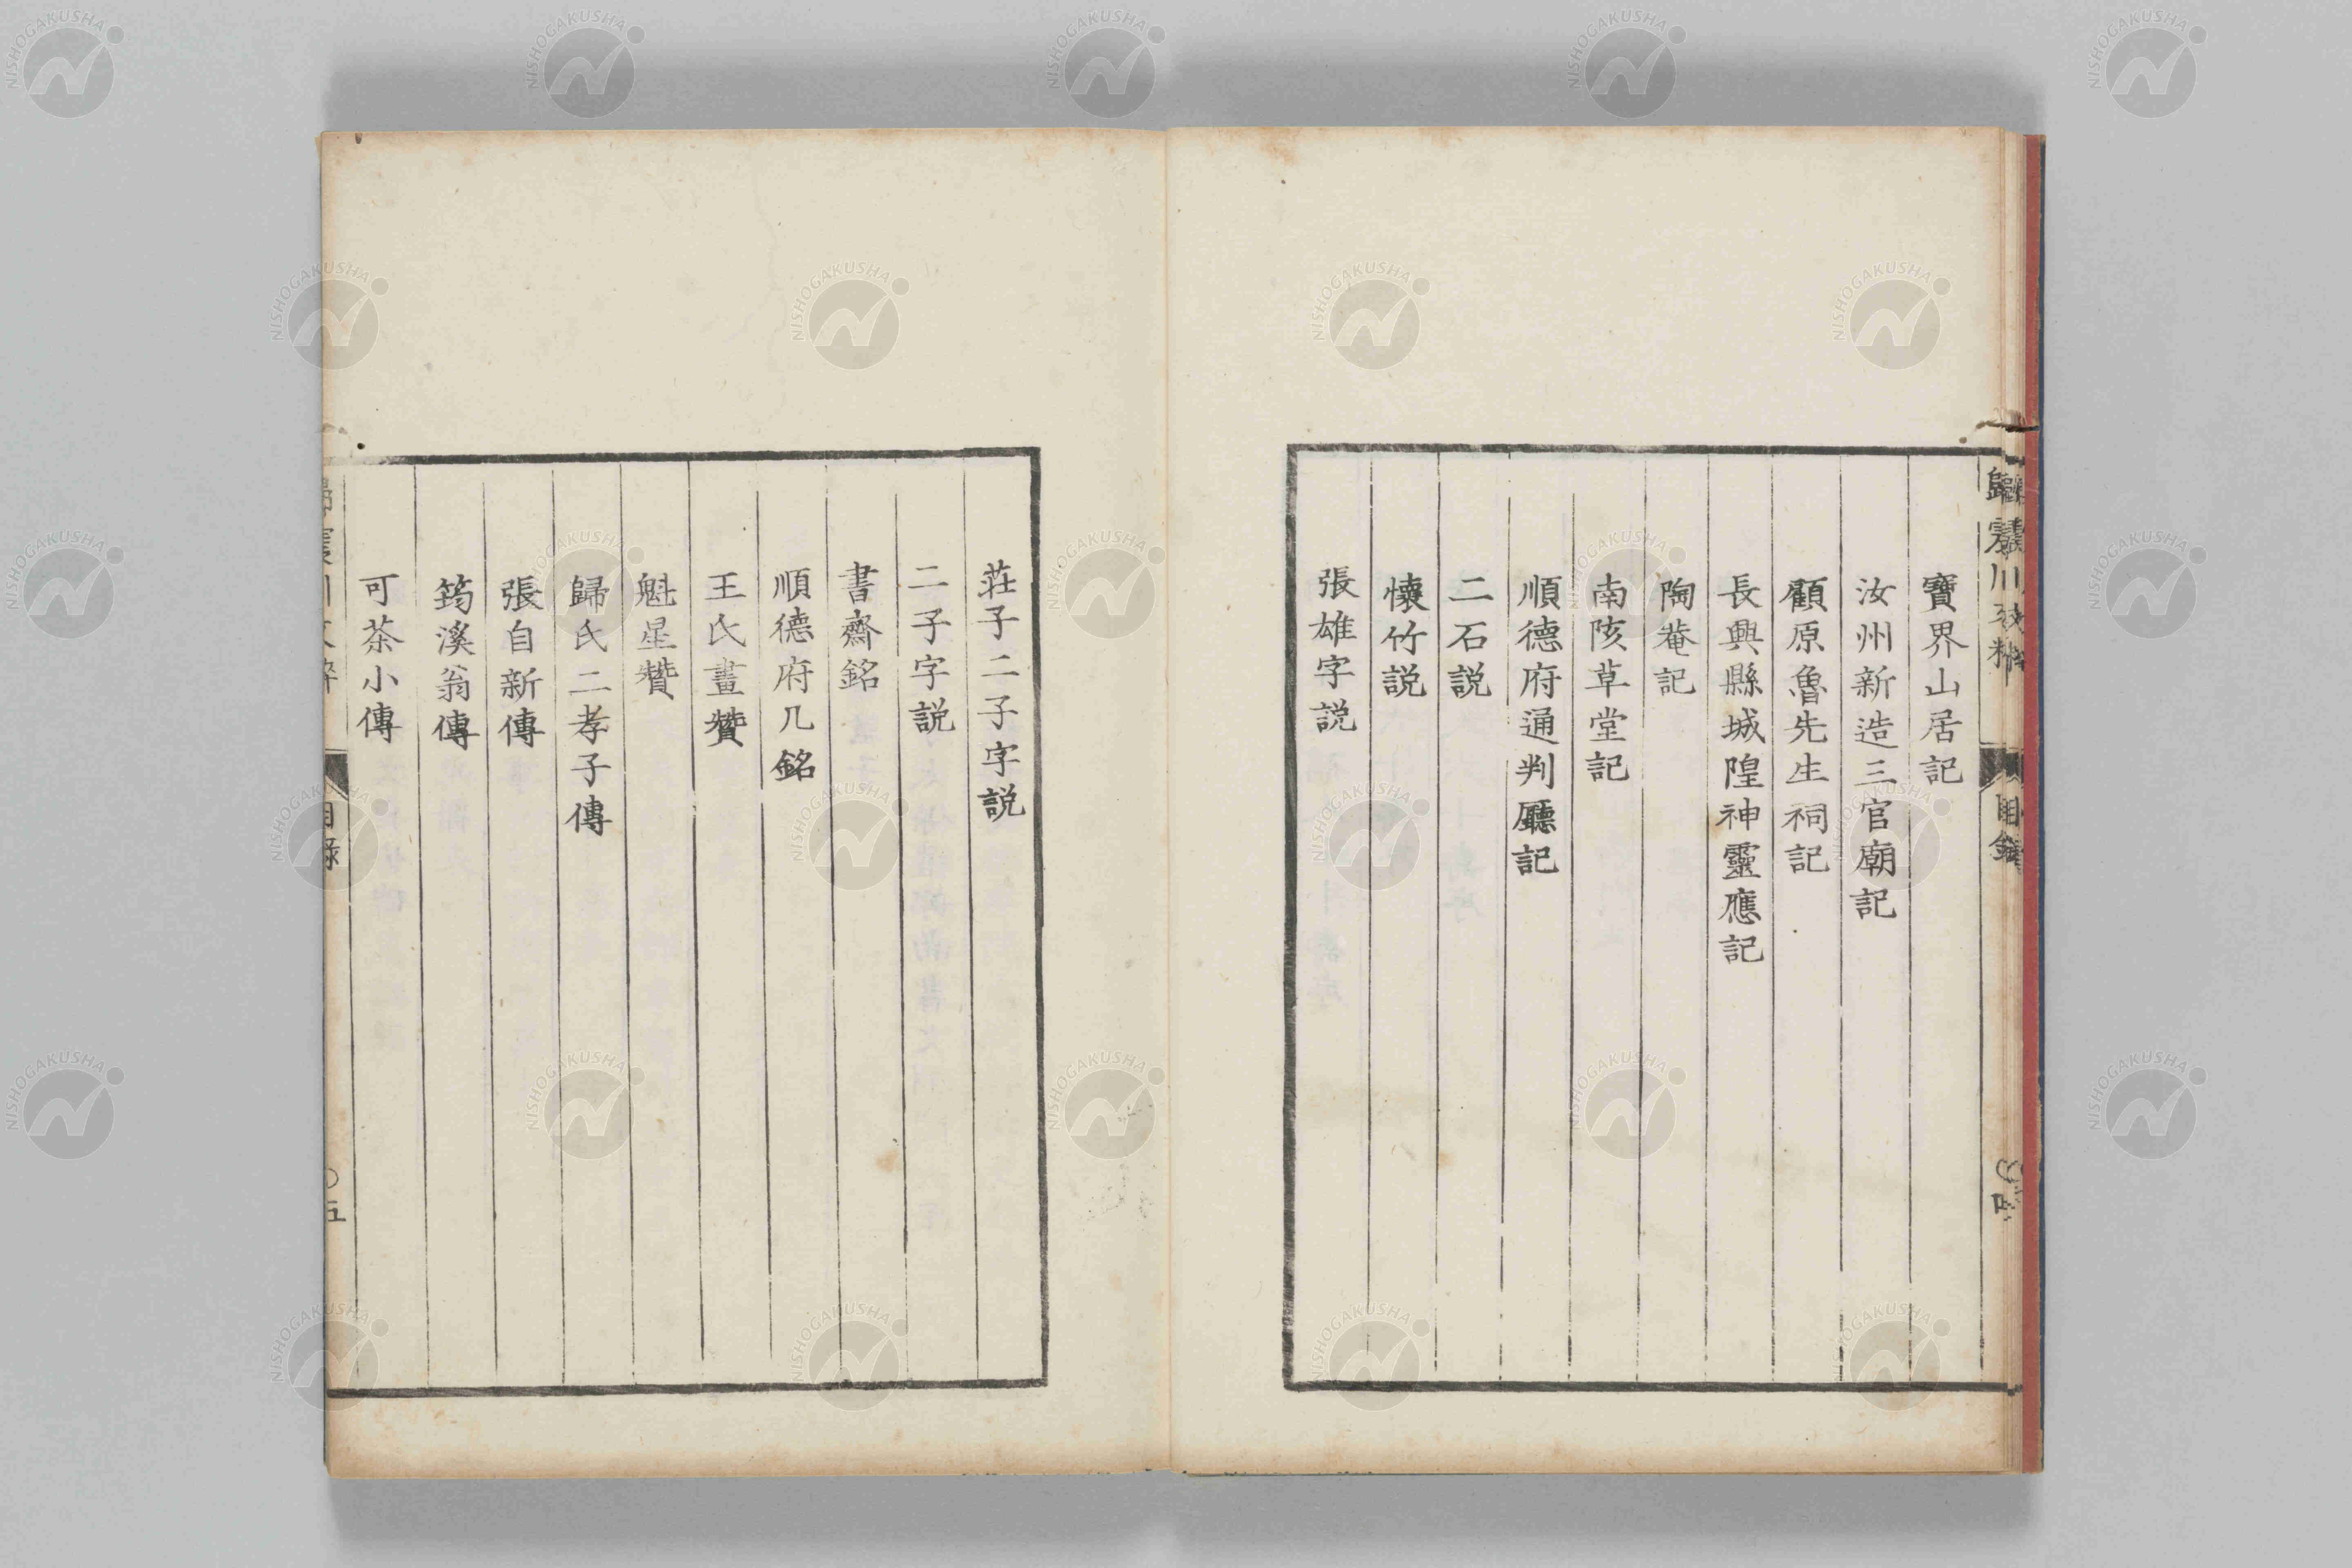 寶界山居記
汝州新造三官廟記
顧原魯先生祠記
長興縣城隍神靈應記
陶菴記
南陔草堂記
順德府通判廳記
二石説
懐竹説
張雄字説
莊子二子字説
二子字説
書齋銘
順德府几銘
王氏畫贊
魁星贊
歸氏二孝子傳
張自新傳
筠溪翁傳
可茶小傳
目錄
五
NISHOGAKUSHA